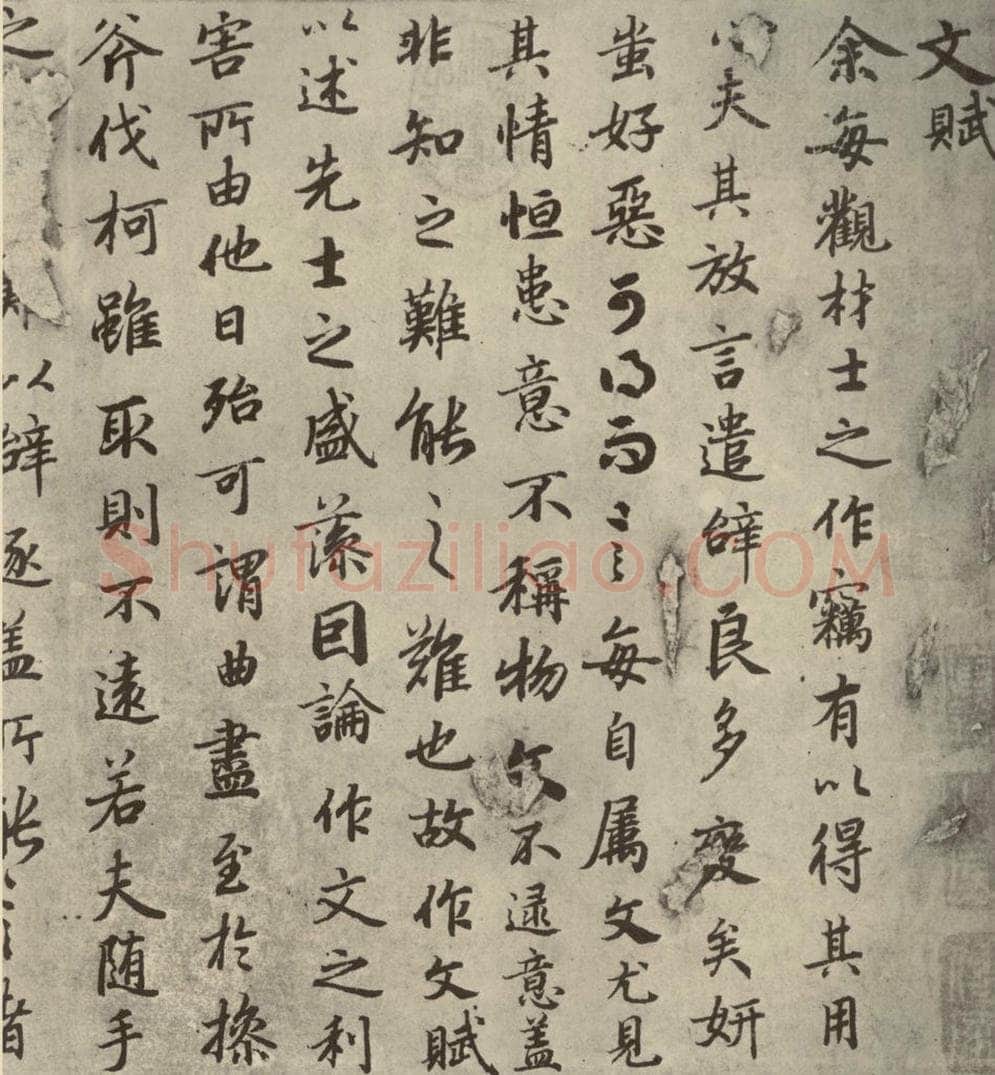 文賦
余每觀材士之作竊有以得其用
心夫其放言遣辭良多變矣妍
蚩好惡可得而言每自属文尤見
其情恒患意不稱物文不逮意盖
非知之難能之難也故作文賦
以述先士之盛藻因論作文之利
害所由他日殆可謂曲盡至於操
斧伐柯雖取則不遠若夫随手
之以辭逐盖所能言者
Shufaziliao.COM